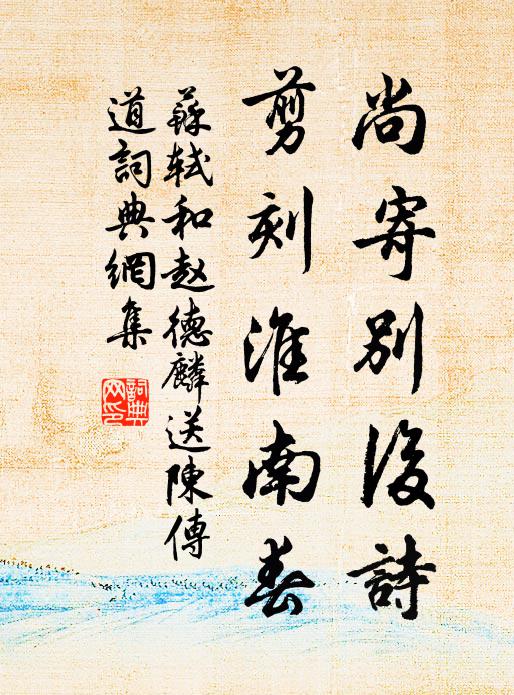 尚寄別後詩
剪刻淮南春
蘇軾和赵德麟送陳傅
道詞典網集
詞典
网印